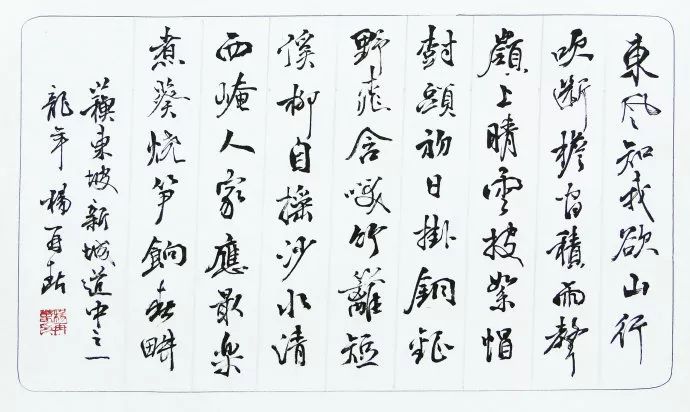 東風知我欲山行
吹斷檐間積雨聲
嶺上晴雲披絮帽
樹頭初日掛銅鉦
野桃含笑竹籬短
溪柳自搖沙水清
西崦人家應最樂
煮葵燒笋餉春畊
蘇東坡新城道中之一
龍年 楊再春